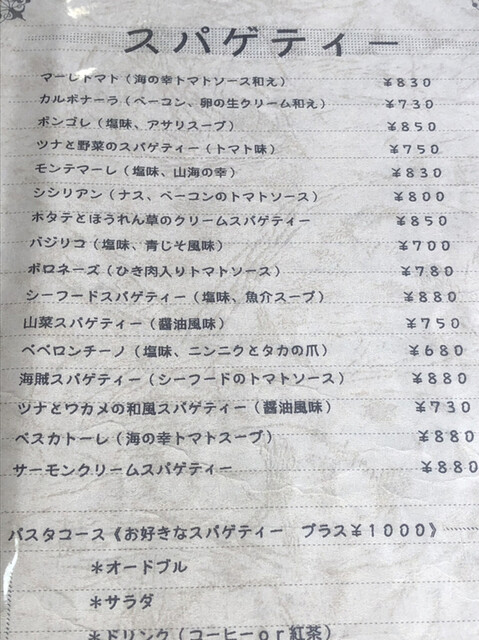 スパゲティー
マーレトマト（海の幸トマトソース和え） ￥830
カルボナーラ（ベーコン、卵の生クリーム和え） ￥730
ボンゴレ（塩味、アサリスープ） ￥850
ツナと野菜のスパゲティー（トマト味） ￥750
モンテマーレ（塩味、山海の幸） ￥830
シシリアン（ナス、ベーコンのトマトソース） ￥800
ホタテとほうれん草のクリームスパゲティー ￥850
バジリコ（塩味、青じそ風味） ￥700
ボロネーズ（ひき肉入りトマトソース） ￥780
シーフードスパゲティー（塩味、魚介スープ） ￥880
山菜スパゲティー（醤油風味） ￥750
ペペロンチーノ（塩味、ニンニクとタカの爪） ￥680
海賊スパゲティー（シーフードのトマトソース） ￥880
ツナとワカメの和風スパゲティー（醤油風味） ￥730
ペスカトーレ（海の幸トマトスープ） ￥880
サーモンクリームスパゲティー ￥880
パスタコース《お好きなスパゲティー　プラス￥1000》
＊オードブル
＊サラダ
＊ドリンク（コーヒーor紅茶）